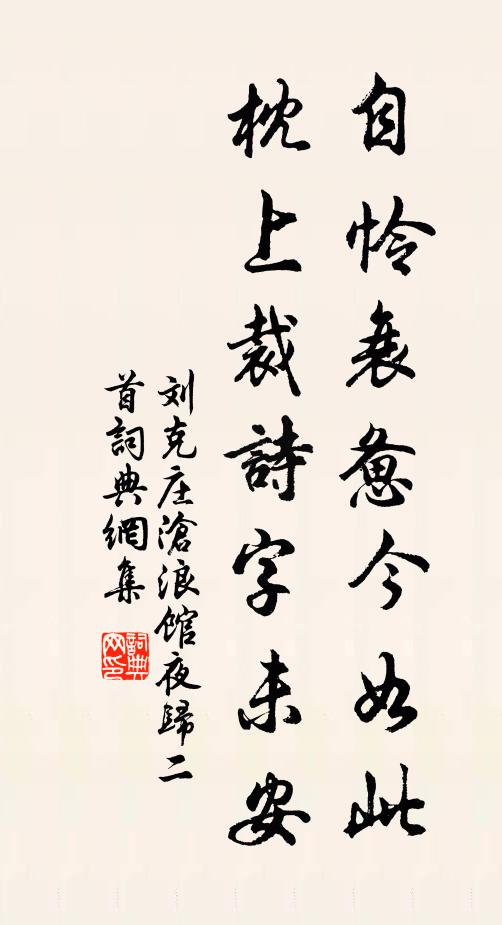 自怜衰惫今如此
枕上裁詩字未安
刘克庄滄浪馆夜歸二
首詞典網集
詞典
网印